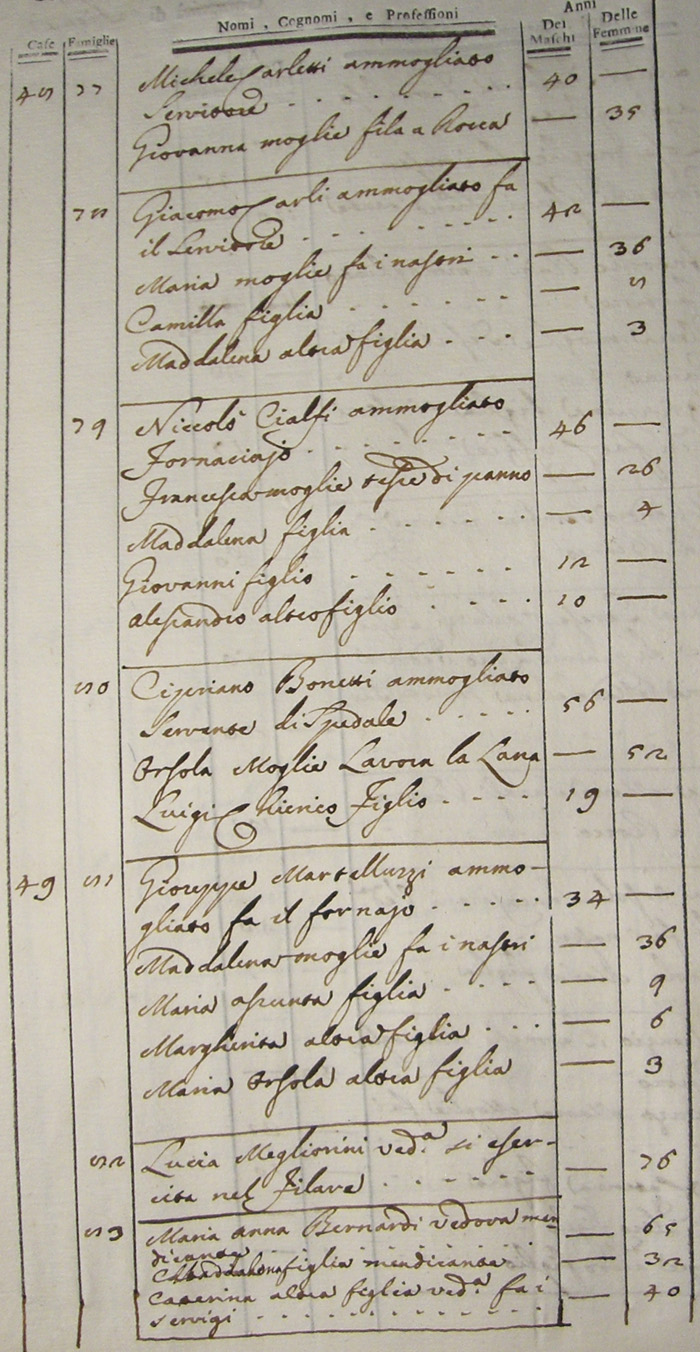 Nomi, Cognomi, e Professioni
Anni
Case Famiglie Dei Maschi Delle Femmine
48 77 Michele Carletti ammogliato
Servitore 40 —
Giovanna moglie fila a Rocca — 35
78 Giacomo Carli ammogliato fa
il Servitore 42 —
Maria moglie fa i nastri — 36
Camilla figlia — 8
Maddalena altra figlia — 3
79 Niccolò Cialfi ammogliato
Fornaciajo 46 —
Francesca moglie tesse di panno — 26
Maddalena figlia — 4
Giovanni figlio 12 —
Alesandro altro figlio 10 —
80 Cipriano Bonetti ammogliato
Servente di Spedale 56 —
Orsola Moglie Lavora la Lana — 52
Luigi Chierico Figlio 19 —
49 81 Giuseppe Martelluzzi ammo-
gliato fa il fornajo 34 —
Maddalena moglie fa i nastri — 36
Maria asunta figlia — 9
Margherita altra figlia — 6
Maria Orsola altra figlia — 3
82 Lucia Megliorini ved.a si eser-
cita nel Filare — 76
83 Maria anna Bernardi vedova men
dicante — 65
Maddalena figlia mendicante — 32
Caterina altra figlia ved.a fa i
servigi — 40